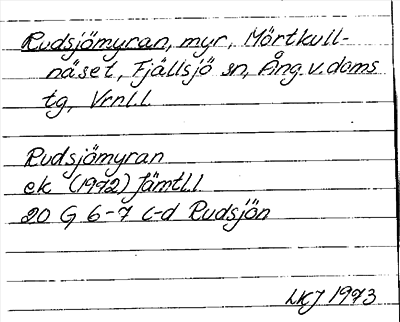 Rudsjömyran, myr, Mörtkull-
näset, Fjällsjö sn, Ång. v. doms
tg, Vrnl.l.
Rudsjömyran
ek (1972) Jämtl.l
20 G 6-7 c-d Rudsjön
LKJ 1973